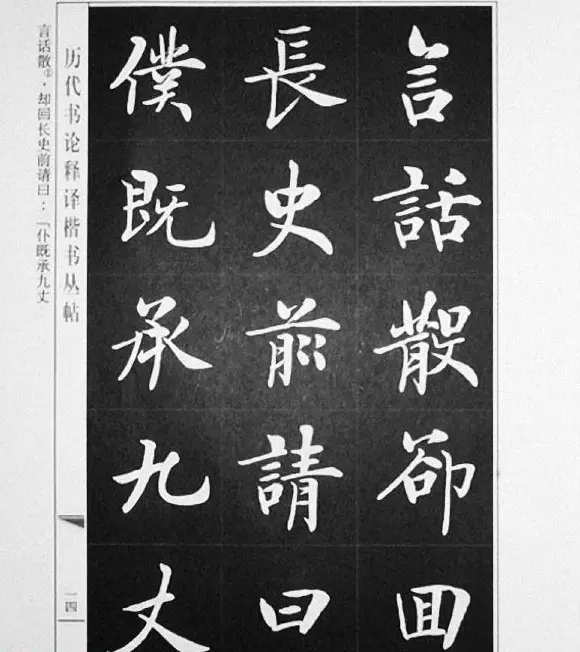 言話散卻回
長史前請曰
僕既承九丈
历代书论释译楷书丛帖
一四
言话散①，却回长史前请曰：「仆既承九丈